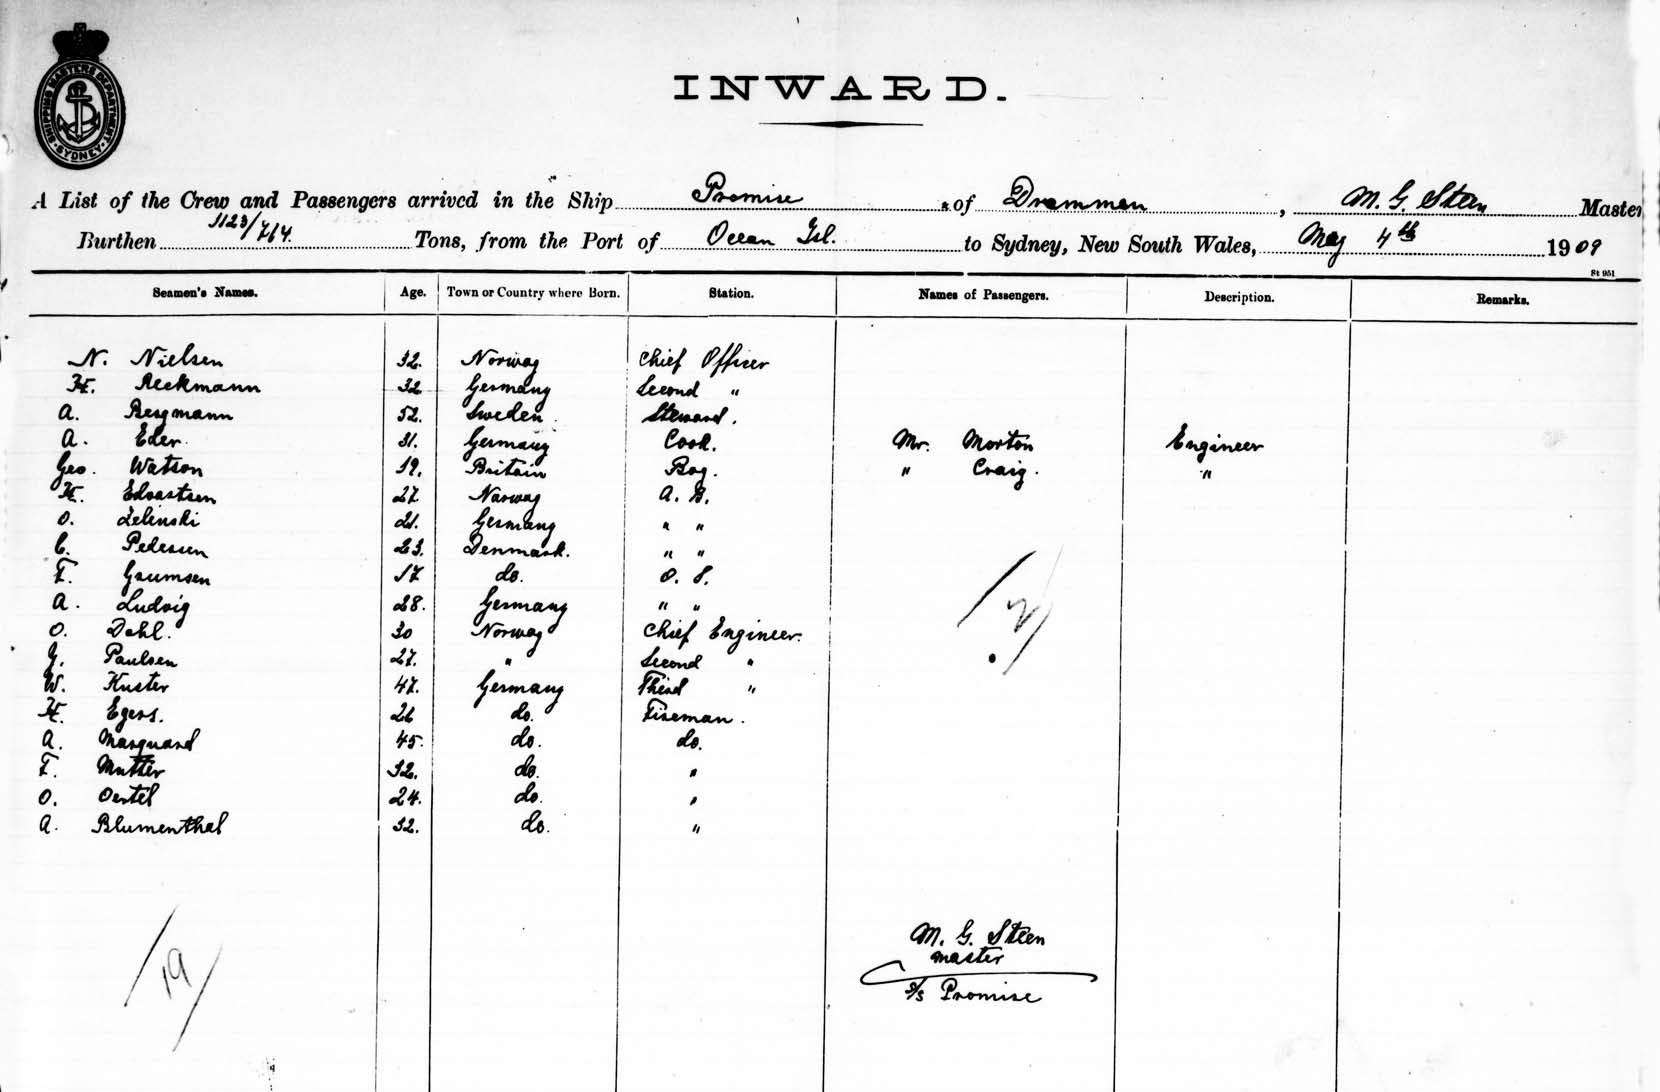 SHIPPING MASTERS DEPARTMENT · SYDNEY ·
INWARD.
A List of the Crew and Passengers arrived in the Ship Promise of Drammen, M. G. Steen Master
Burthen 1123/764 Tons, from the Port of Ocean Isl. to Sydney, New South Wales, May 4th 1909
St 951
Seamen's Names. Age. Town or Country where Born. Station. Names of Passengers. Description. Remarks.
N. Nielsen 32. Norway Chief Officer
H. Reckmann 32 Germany Second "
A. Bergmann 52. Sweden Steward.
A. Eder 31. Germany Cook. Mr. Morton Engineer
Geo. Watson 19. Britain Boy. " Craig. "
H. Edvartsen 27 Norway A. B.
O. Zelinski 21. Germany " "
C. Pedersen 23. Denmark. " "
F. Grumsen 17 do. O. S.
A. Ludvig 28. Germany " "
O. Dahl. 30 Norway Chief Engineer.
G. Paulsen 27. " Second "
W. Kuster 47. Germany Third "
H. Egers. 26 do. Fireman.
A. Marquard 45. do. do.
F. Mutter 32. do. "
O. Oertel 24. do. "
A. Blumenthal 32. do. "
/2/
M. G. Steen
master
s/s Promise
/19/